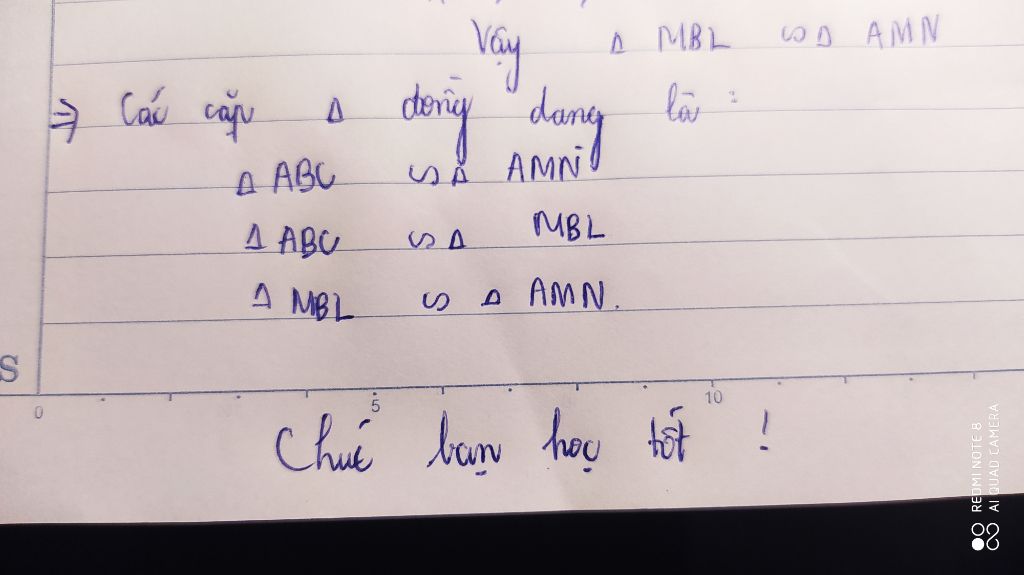 Vậy Δ MBL ∽ Δ AMN
⇒ Các cặp Δ đồng dạng là :
Δ ABC ∽ Δ AMN
Δ ABC ∽ Δ MBL
Δ MBL ∽ Δ AMN.
S
0 5 10
Chúc bạn học tốt !
REDMI NOTE 8
AI QUAD CAMERA